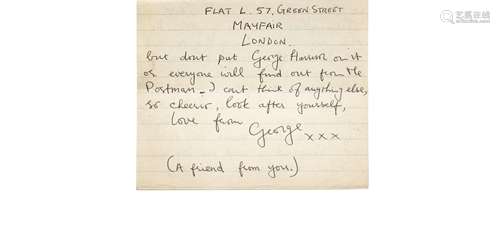 FLAT L. 57, GREEN STREET
MAYFAIR
LONDON.
but dont put George Harrison on it
or everyone will find out from the
Postman – I cant think of anything else,
so cheerio, look after yourself,
love from
George x x x
(A friend from you.)